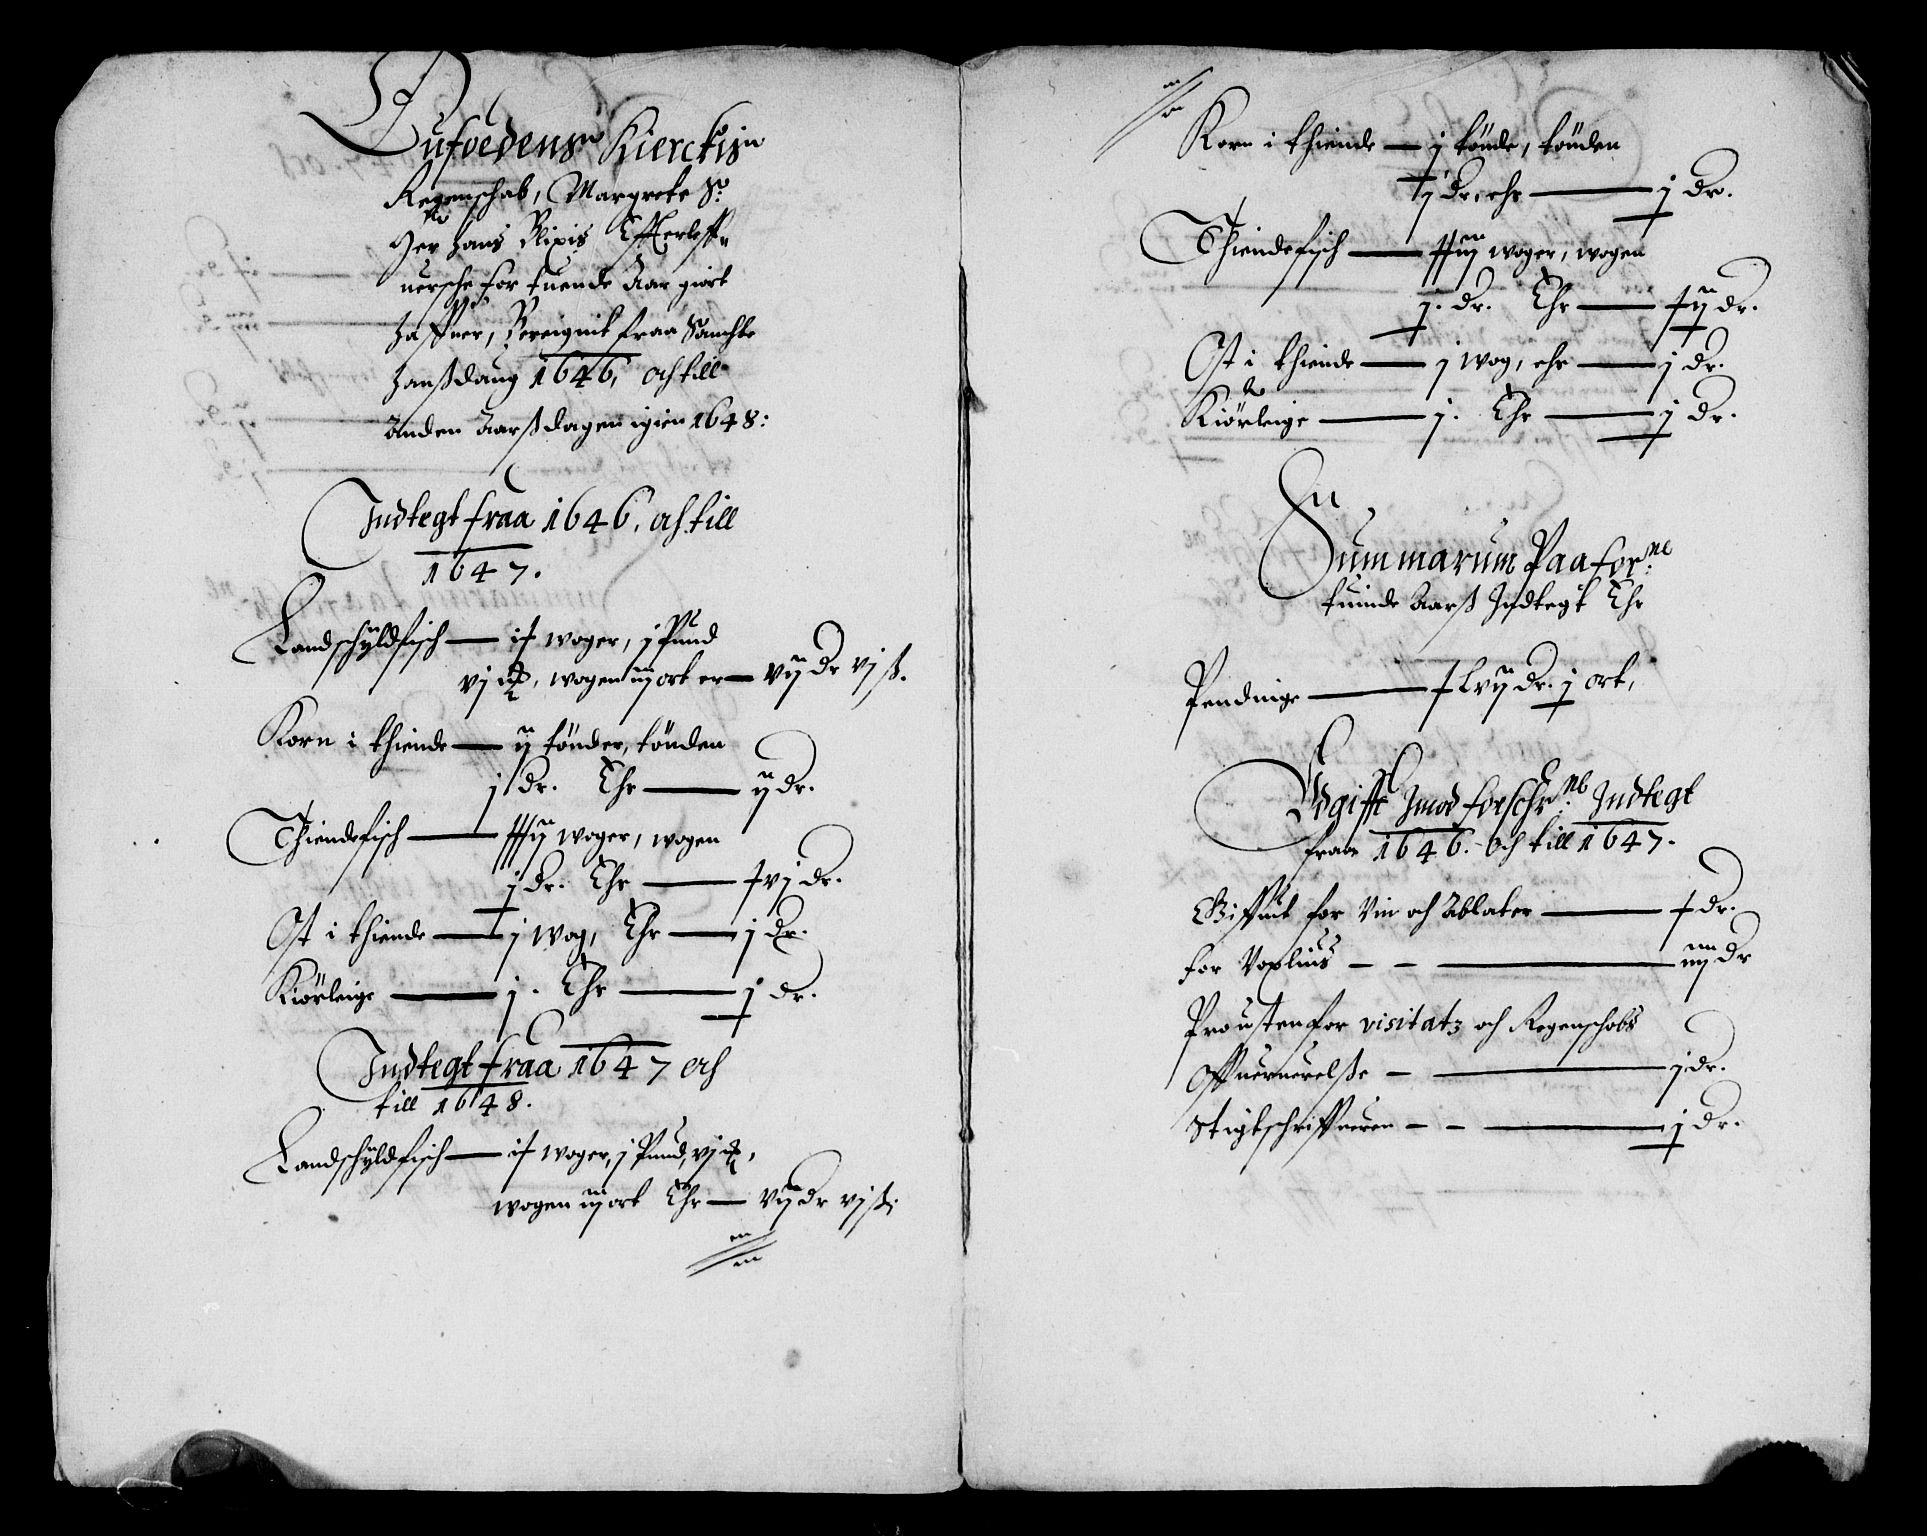 Tufioedens Kierckis
Regenschab, Margrete S:
Her Hans Blixis Effterleff-
uersche for tuende Aar giort
haffuer, Bereignit fraa Sanchte
Hanßdaug 1646, och till
anden Aarßdagen igien 1648:
Indtegt fraa 1646. och till
1647.
Landschÿldfisch — if woger, j Pund
vj , wogen iij ort er — vij dr vj ß.
Korn i thiende — ij tönder, tönden
j dr. Ehr — ij dr.
Thiendefisch — woger, wogen
j dr. Ehr — xvj dr.
Ost i thiende — j wog, Ehr — j dr.
Kiörleige — j. Ehr — j dr.
Indtegt fraa 1647 och
till 1648.
Landschÿldfisch — if woger, j Pund, vj ,
wogen iij ort Ehr — vij dr vj ß.
Korn i thiende — j tönde, tönden
j dr, ehr — j dr.
Thiendefisch — woger, wogen
j. dr. Ehr — xij dr.
Ost i thiende — j wog, ehr — j dr.
Kiörleige — j. Ehr — j dr.
In
Summarum Paa for:ne
tuinde Aarß Indtegt Ehr
Pendinge — Lvij dr. j ort,
Udgifft Imod forschr:ne Indtegt
fraa 1646. och till 1647.
Giffuit for Vin och Ablater — x dr.
for Voxlius — — iiij dr
Prousten for visitatz och Regenschabs
Offueruerelße — j dr.
Stigtschriffueren — — j dr.